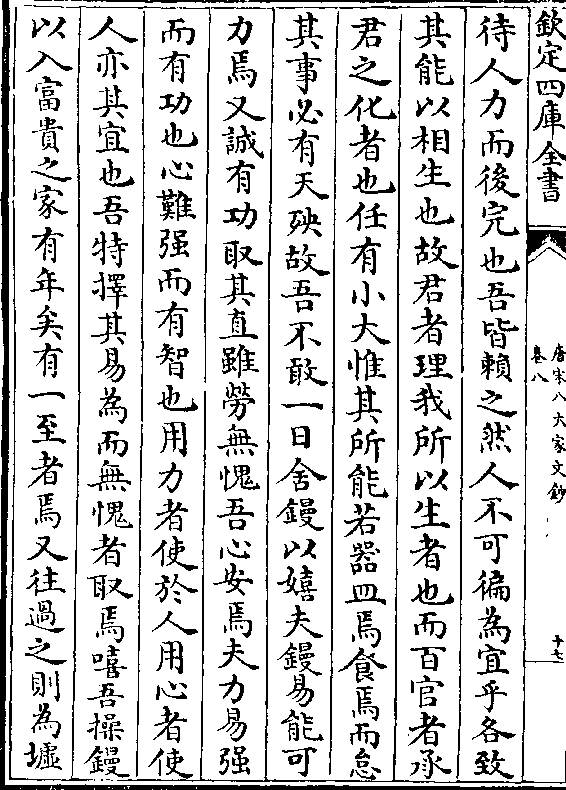 欽定四庫全書
唐宋八大家文鈔
卷八
十七
待人力而後完也吾皆賴之然人不可徧為宜乎各致
其能以相生也故君者理我所以生者也而百官者承
君之化者也任有小大惟其所能若器皿焉食焉而怠
其事必有天殃故吾不敢一日舍鏝以嬉夫鏝易能可
力焉又誠有功取其直雖勞無愧吾心安焉夫力易强
而有功也心難强而有智也用力者使於人用心者使
人亦其宜也吾特擇其易為而無愧者取焉嘻吾操鏝
以入富貴之家有年矣有一至者焉又往過之則為墟